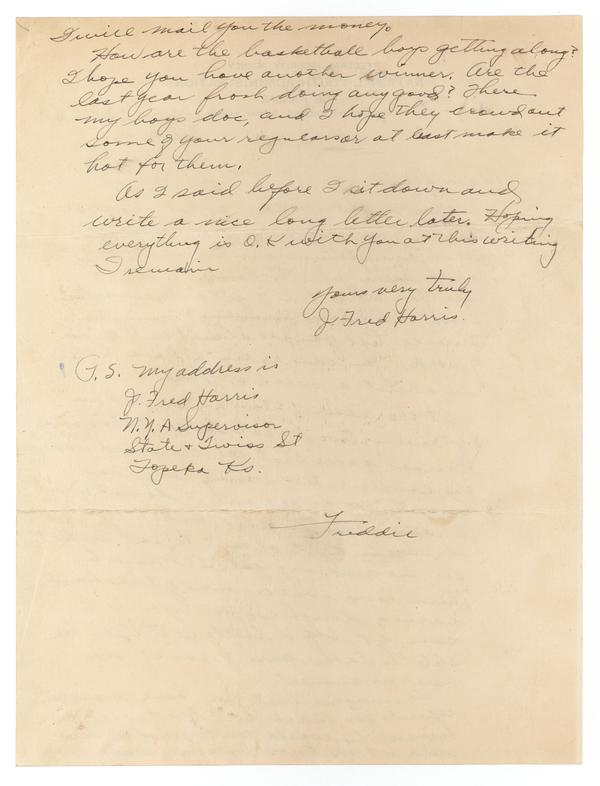 I will mail you the money.
How are the basketball boys getting along?
I hope you have another winner. Are the
last year frosh doing any good? There
my boys doc, and I hope they crowd out
some of your regulars or at least make it
hot for them.
As I said before I sit down and
write a nice long letter later. Hoping
everything is O.K with you at this writing
I remain
Yours very truly
J. Fred Harris.
P. S. My address is
J. Fred Harris
N.Y.A Supervisor
State + Twiss St
Topeka Ks.
Freddie